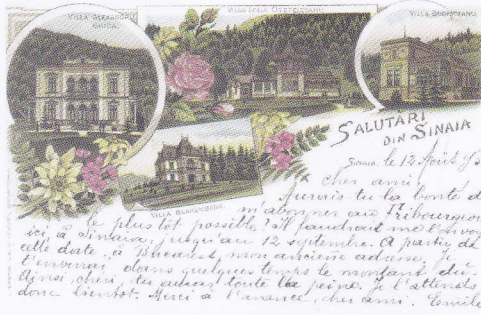 VILLA ALEXANDRU
GHICA.
VILLA LIVIA
VILLA
VILLA BLAREMBERG.
SALUTARI
DIN SINAIA
Sinaia, le 12 Août
cher ami,
Aurais-tu la bonté d
m'abonner au Fribourgeois
le plus tôt possible. Il faudrait me l'envoy
ici à Sinaia, jusqu'au 12 septembre. A partir de
cette date, à Bucarest, mon ancienne adresse. Je
t'enverrai dans quelques temps le montant dû.
Ainsi, cher, tu auras toute la peine. Je l'attends
donc bientôt. Merci à l'avance, cher ami. Emile